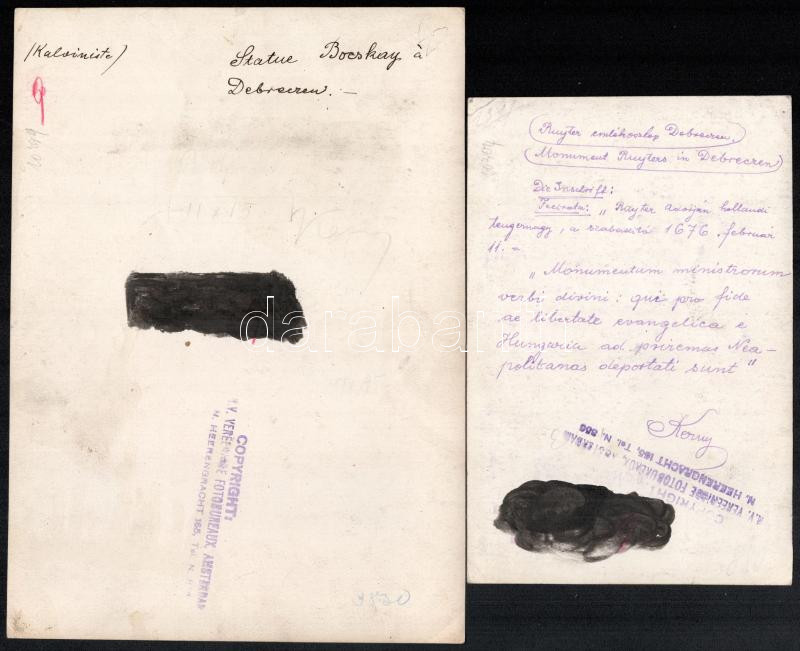 (Kalviniste)
Statue Bocskay à
Debreczen. —
COPYRIGHT:
N.V. VEREENIGDE FOTOBUREAUX, AMSTERDAM
N. HEERENGRACHT 165, Tel. N.
3850
darabanth
Ruyter emlékoszlop Debreczen.
(Monument Ruyters in Debreczen)
Die Inschrift:
" Ruyter hollandi
tengernagy, a szabadító 1676. február
11. —
„ Monumentum ministrorum
verbi divini: qui pro fide
ac libertate evangelica e
Hungaria ad psiremas Nea-
politanas deportati sunt"
COPYRIGHT
N.V. VEREENIGDE FOTOBUREAUX, AMSTERDAM
N. HEERENGRACHT 165, Tel. N. 566